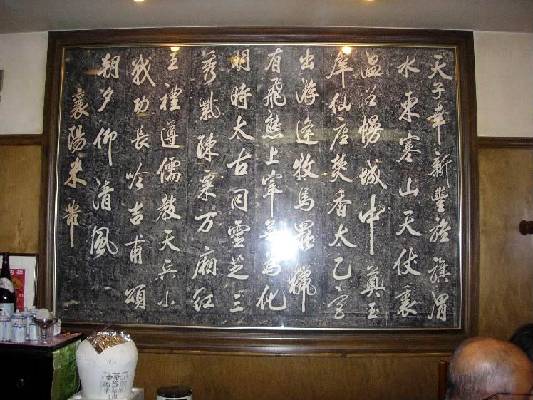 天子幸新豐旌旗渭
水東寒山天仗裏
溫谷幔城中奠玉
羣仙座焚香太乙宮
出游逢牧馬罷獵
有飛熊上宰無為化
明時太古同靈芝三
秀紫陳粟万廂紅
王禮遵儒教天兵小
戰功長吟吉甫頌
朝夕仰清風
襄陽米芾